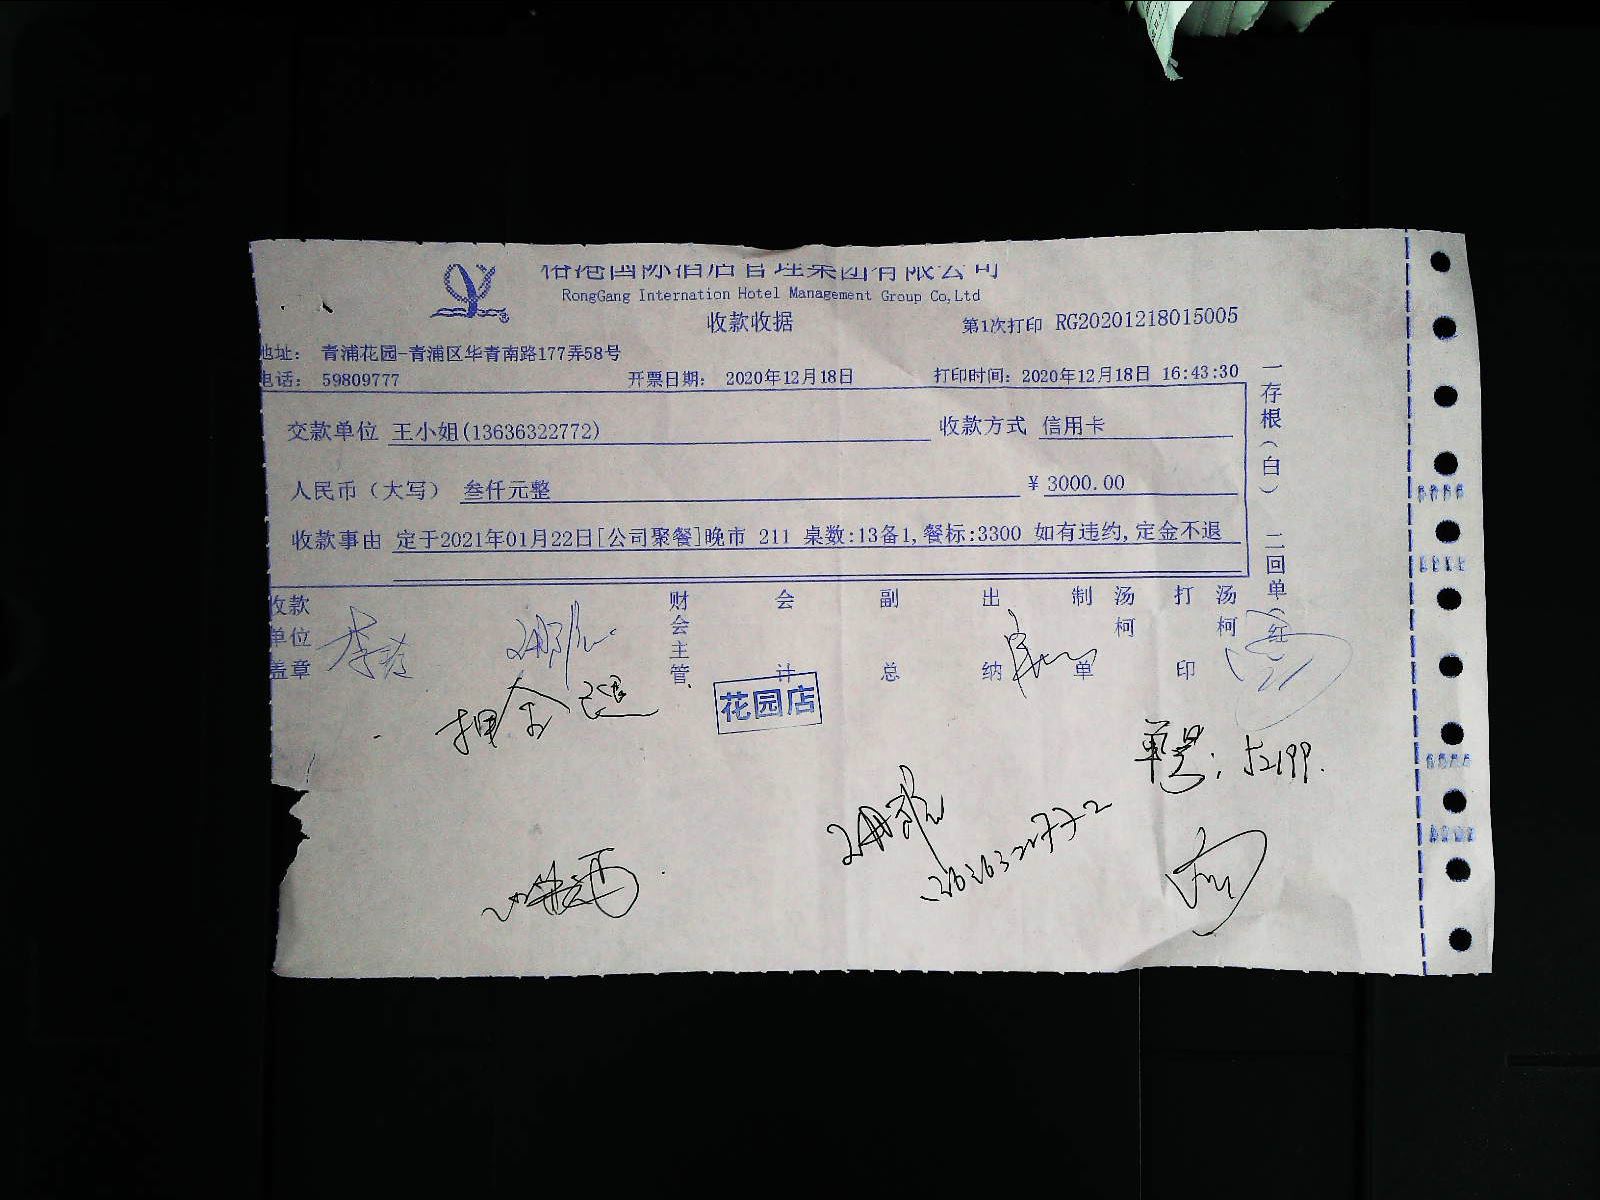 国际酒店管理集团有限公司
RongGang Internation Hotel Management Group Co,Ltd
收款收据
第1次打印 RG20201218015005
地址： 青浦花园-青浦区华青南路177弄58号
电话： 59809777 开票日期： 2020年12月18日 打印时间：2020年12月18日 16:43:30
交款单位 王小姐(13636322772) 收款方式 信用卡
人民币（大写） 叁仟元整 ¥ 3000.00
收款事由 定于2021年01月22日[公司聚餐]晚市 211 桌数:13备1,餐标:3300 如有违约,定金不退
一存根（白） 二回单（红
收款单位盖章
财会主管
会计
副总
出纳
制单
汤柯
打印
汤柯
押金退
花园店
单号：52199.
13636322772